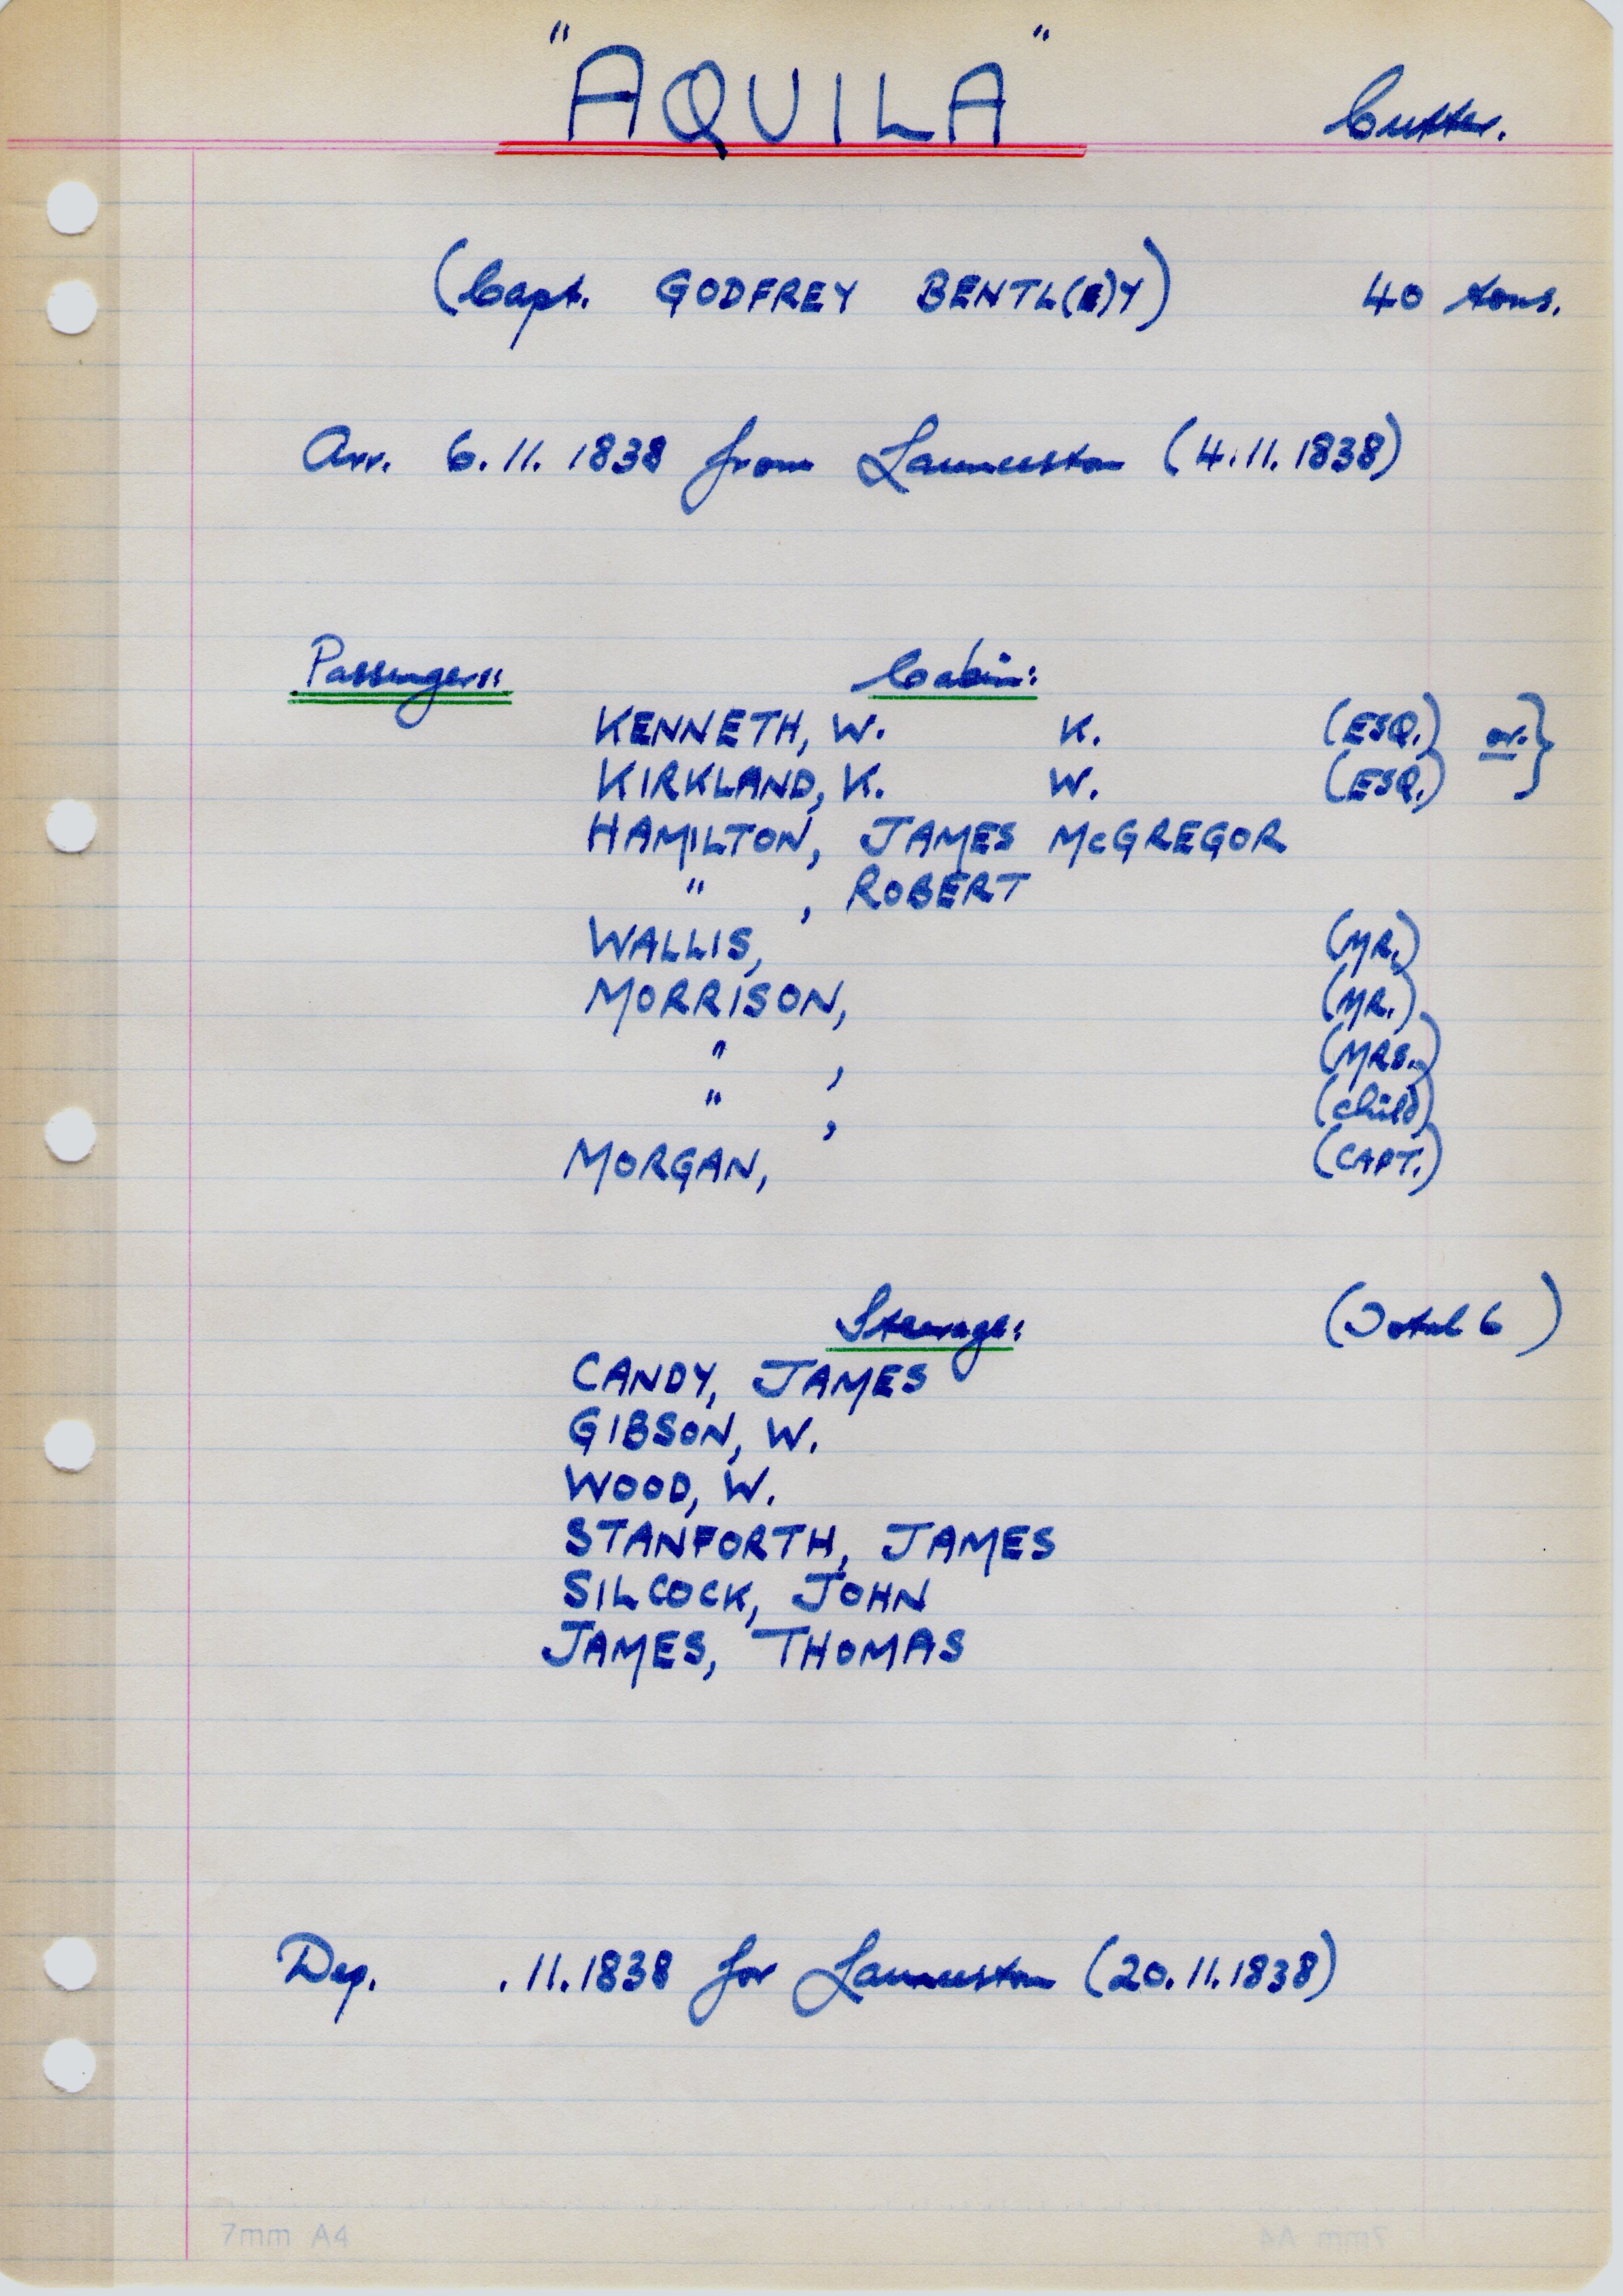 "AQUILA" Cutter.
(Capt. GODFREY BENTL(E)Y) 40 tons.
Arr. 6.11.1838 from Launceston (4.11.1838)
Passengers: Cabin:
KENNETH, W. K. (ESQ.) or. }
KIRKLAND, K. W. (ESQ.)
HAMILTON, JAMES McGREGOR
" , ROBERT
WALLIS, (MR.)
MORRISON, (MR.)
" , (MRS.)
" , (child)
MORGAN, (CAPT.)
Steerage: (Total 6 )
CANDY, JAMES
GIBSON, W.
WOOD, W.
STANFORTH, JAMES
SILCOCK, JOHN
JAMES, THOMAS
Dep. .11.1838 for Launceston (20.11.1838)
7mm A4